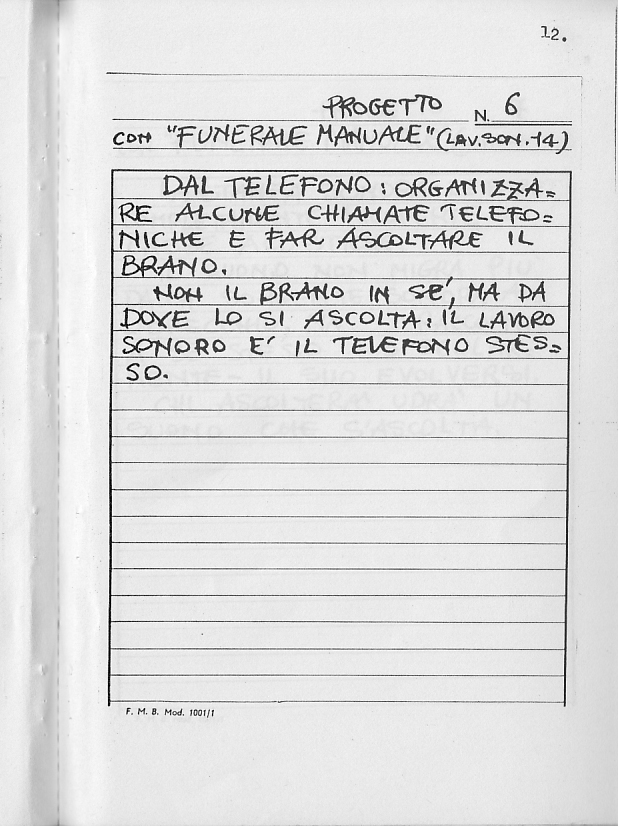 12.
PROGETTO N. 6
CON "FUNERALE MANUALE" (LAV. SON. 14)
DAL TELEFONO: ORGANIZZA=
RE ALCUNE CHIAMATE TELEFO=
NICHE E FAR ASCOLTARE IL
BRANO.
NON IL BRANO IN SE', MA DA
DOVE LO SI ASCOLTA: IL LAVORO
SONORO E' IL TELEFONO STES=
SO.
F. M. B. Mod. 1001/1